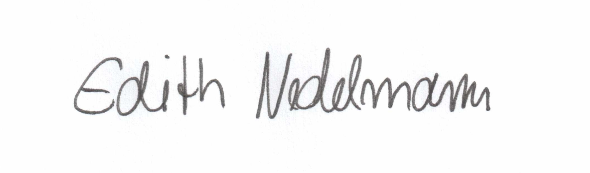 Edith Nedelmann